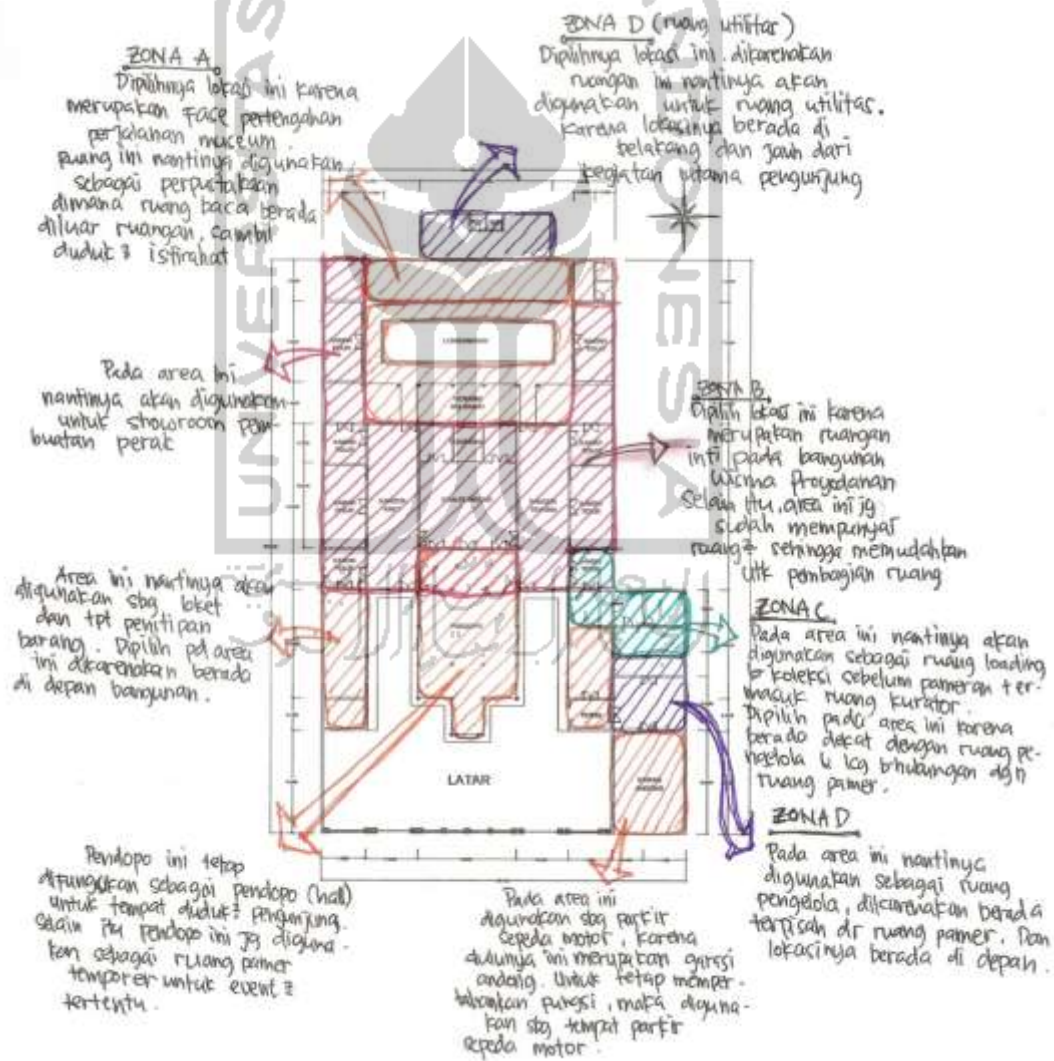 ZONA A
Dipilihnya lokasi ini karena
merupakan Face pertengahan
perjalanan museum.
Ruang ini nantinya digunakan
sebagai perpustakaan
dimana ruang baca berada
diluar ruangan, sambil
duduk2 istirahat
ZONA D (ruang utilitas)
Dipilihnya lokasi ini dikarenakan
ruangan ini nantinya akan
digunakan untuk ruang utilitas.
karena lokasinya berada di
belakang dan jauh dari
kegiatan utama pengunjung
Pada area ini
nantinya akan digunakan
untuk showroom pem-
buatan perak
ZONA B
Dipilih lokasi ini karena
merupakan ruangan
inti pada bangunan
Wisma Proyodanan
Selain itu, area ini jg
sudah mempunyai
ruang2 sehingga memudahkan
utk pembagian ruang
Area ini nantinya akan
digunakan sbg loket
dan tpt penitipan
barang. Dipilih pd area
ini dikarenakan berada
di depan bangunan.
ZONA C
Pada area ini nantinya akan
digunakan sebagai ruang loading
koleksi sebelum pameran ter-
masuk ruang kurator.
Dipilih pada area ini karena
berada dekat dengan ruang pe-
ngelola & lsg b'hubungan dgn
ruang pamer.
LATAR
ZONA D
Pada area ini nantinya
digunakan sebagai ruang
pengelola, dikarenakan berada
terpisah dr ruang pamer. Dan
lokasinya berada di depan.
Pendopo ini tetap
difungsikan sebagai pendopo (hall)
untuk tempat duduk2 pengunjung.
selain itu pendopo ini jg diguna-
kan sebagai ruang pamer
temporer untuk event2
tertentu.
Pada area ini
digunakan sbg parkir
sepeda motor, karena
dulunya ini merupakan garasi
andong. Untuk tetap memper-
tahankan fungsi, maka diguna-
kan sbg tempat parkir
sepeda motor.
UNIVERSITAS
INDONESIA